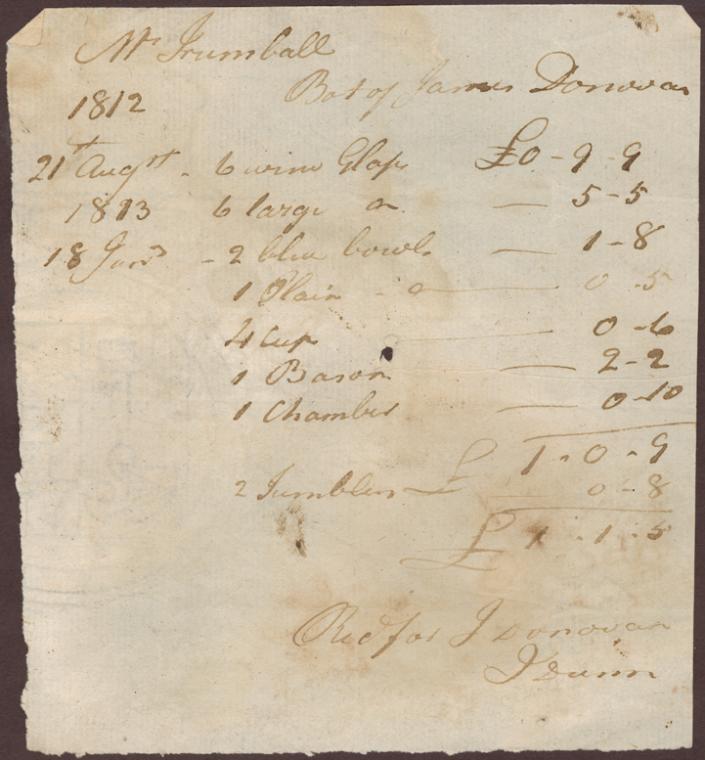 Mr Trumball
1812 Bot of James Donovan
21st Augst - 6 wine Glass £0-9-9
1813 6 large Do — 5-5
18 Jany - 2 blue bowls — 1-8
1 Plain - Do — 0-5
4 Cups — 0-6
1 Bason — 2-2
1 Chamber — 0-10
£ 1-0-9
2 Tumblers — 0-8
£ 1-1-5
Recd for J Donovan
J Dunn